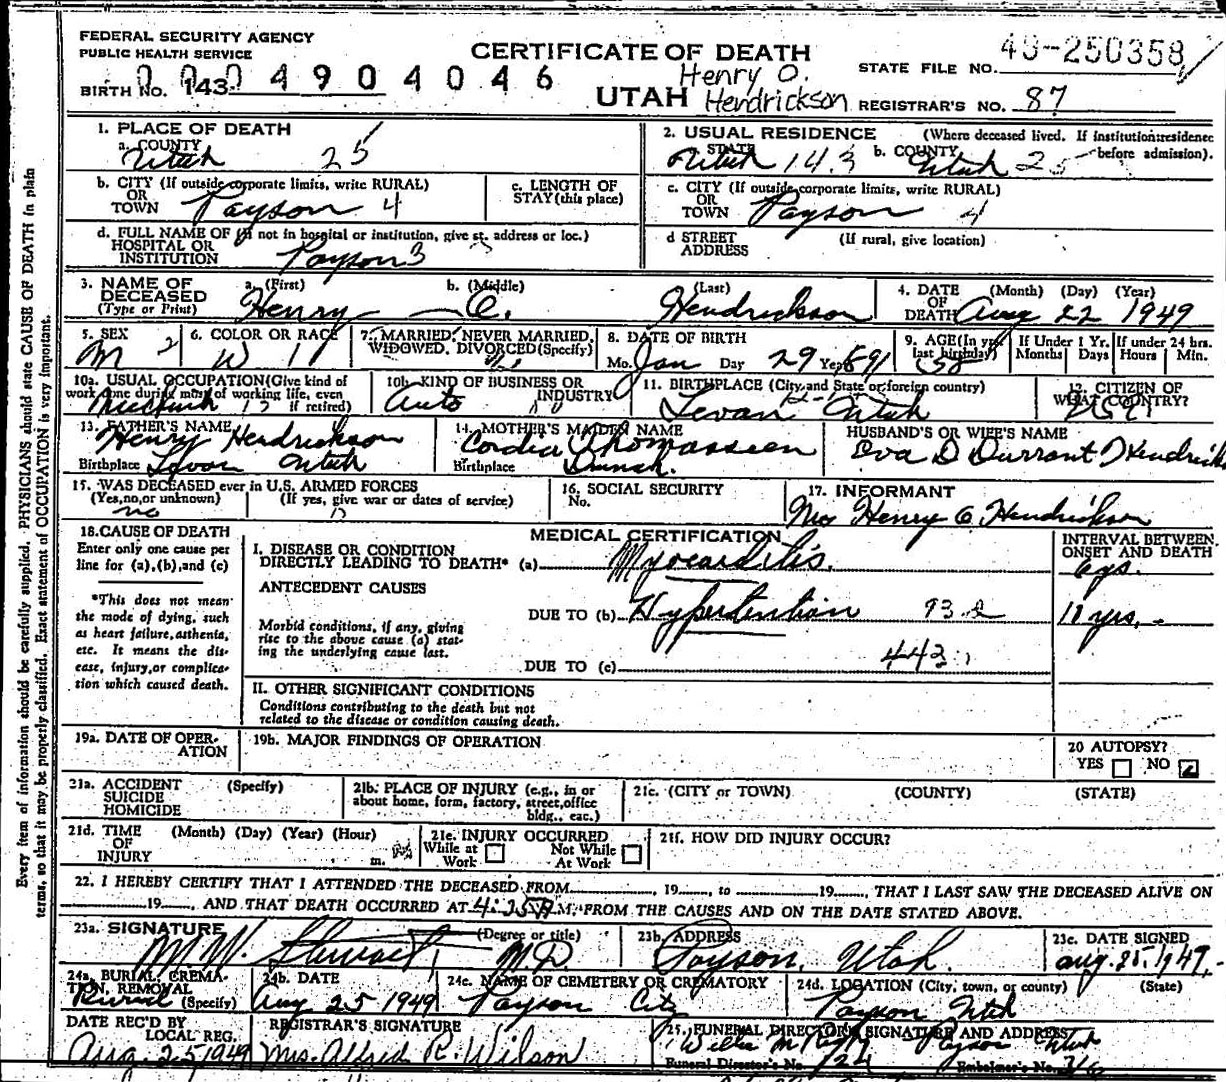 FEDERAL SECURITY AGENCY
PUBLIC HEALTH SERVICE
CERTIFICATE OF DEATH
49-250358
STATE FILE NO.
BIRTH NO. 143
0 0 0 4 9 0 4 0 4 6
UTAH
Henry O.
Hendrickson
REGISTRAR'S NO. 87
1. PLACE OF DEATH
a. COUNTY
Utah 25
2. USUAL RESIDENCE (Where deceased lived. If institution: residence before admission).
a. STATE Utah 143 b. COUNTY Utah 25
b. CITY (If outside corporate limits, write RURAL)
OR TOWN Payson 4
c. LENGTH OF STAY (this place)
c. CITY (If outside corporate limits, write RURAL)
OR TOWN Payson 4
d. FULL NAME OF (If not in hospital or institution, give st. address or loc.)
HOSPITAL OR INSTITUTION Payson 3
d STREET ADDRESS (If rural, give location)
3. NAME OF DECEASED (Type or Print)
a. (First) Henry
b. (Middle) O.
(Last) Hendrickson
4. DATE OF DEATH (Month) (Day) (Year)
Aug 22 1949
5. SEX M 2
6. COLOR OR RACE W 1
7. MARRIED, NEVER MARRIED, WIDOWED, DIVORCED (Specify)
8. DATE OF BIRTH
Mo. Jan Day 29 Year 891
9. AGE (In yrs. last birthday) 58
If Under 1 Yr. Months Days
If under 24 hrs. Hours Min.
10a. USUAL OCCUPATION (Give kind of work done during most of working life, even if retired)
10b. KIND OF BUSINESS OR INDUSTRY
Auto
11. BIRTHPLACE (City and State or foreign country)
Levan Utah
12. CITIZEN OF WHAT COUNTRY?
13. FATHER'S NAME
Henry Hendrickson
Birthplace Levan Utah
14. MOTHER'S MAIDEN NAME
Cordia Thomassen
Birthplace
HUSBAND'S OR WIFE'S NAME
Eva D Durrant Hendrick
15. WAS DECEASED ever in U.S. ARMED FORCES
(Yes, no, or unknown) (If yes, give war or dates of service)
no
16. SOCIAL SECURITY No.
17. INFORMANT
Mrs Henry O. Hendrickson
18. CAUSE OF DEATH
Enter only one cause per line for (a), (b), and (c)
*This does not mean the mode of dying, such as heart failure, asthenia, etc. It means the disease, injury, or complication which caused death.
MEDICAL CERTIFICATION
INTERVAL BETWEEN ONSET AND DEATH
I. DISEASE OR CONDITION DIRECTLY LEADING TO DEATH* (a) Myocarditis.
ANTECEDENT CAUSES
DUE TO (b) Hypertention 93
Morbid conditions, if any, giving rise to the above cause (a) stating the underlying cause last.
DUE TO (c)
443
II. OTHER SIGNIFICANT CONDITIONS
Conditions contributing to the death but not related to the disease or condition causing death.
19a. DATE OF OPERATION
19b. MAJOR FINDINGS OF OPERATION
20 AUTOPSY?
YES NO
21a. ACCIDENT SUICIDE HOMICIDE (Specify)
21b. PLACE OF INJURY (e.g., in or about home, form, factory, street, office bldg., eac.)
21c. (CITY or TOWN) (COUNTY) (STATE)
21d. TIME OF INJURY (Month) (Day) (Year) (Hour) m.
21e. INJURY OCCURRED
While at Work Not While At Work
21f. HOW DID INJURY OCCUR?
22. I HEREBY CERTIFY THAT I ATTENDED THE DECEASED FROM , 19 , to 19 , THAT I LAST SAW THE DECEASED ALIVE ON
19 , AND THAT DEATH OCCURRED AT 4:35 M. FROM THE CAUSES AND ON THE DATE STATED ABOVE.
23a. SIGNATURE (Degree or title)
M.W. Stewart, MD
23b. ADDRESS
Payson, Utah.
23c. DATE SIGNED
Aug. 25, 1949
24a. BURIAL, CREMATION, REMOVAL (Specify)
Burial
24b. DATE
Aug 25 1949
24c. NAME OF CEMETERY OR CREMATORY
Payson City
24d. LOCATION (City, town, or county) (State)
Payson Utah
DATE REC'D BY LOCAL REG.
Aug. 25 1949
REGISTRAR'S SIGNATURE
Mrs. Alfred R. Wilson
25. FUNERAL DIRECTOR'S SIGNATURE AND ADDRESS
Payson Utah
Funeral Director's No. 724
Embalmer's No.
Every item of information should be carefully supplied. PHYSICIANS should state CAUSE OF DEATH in plain
terms, so that it may be properly classified. Exact statement of OCCUPATION is very important.